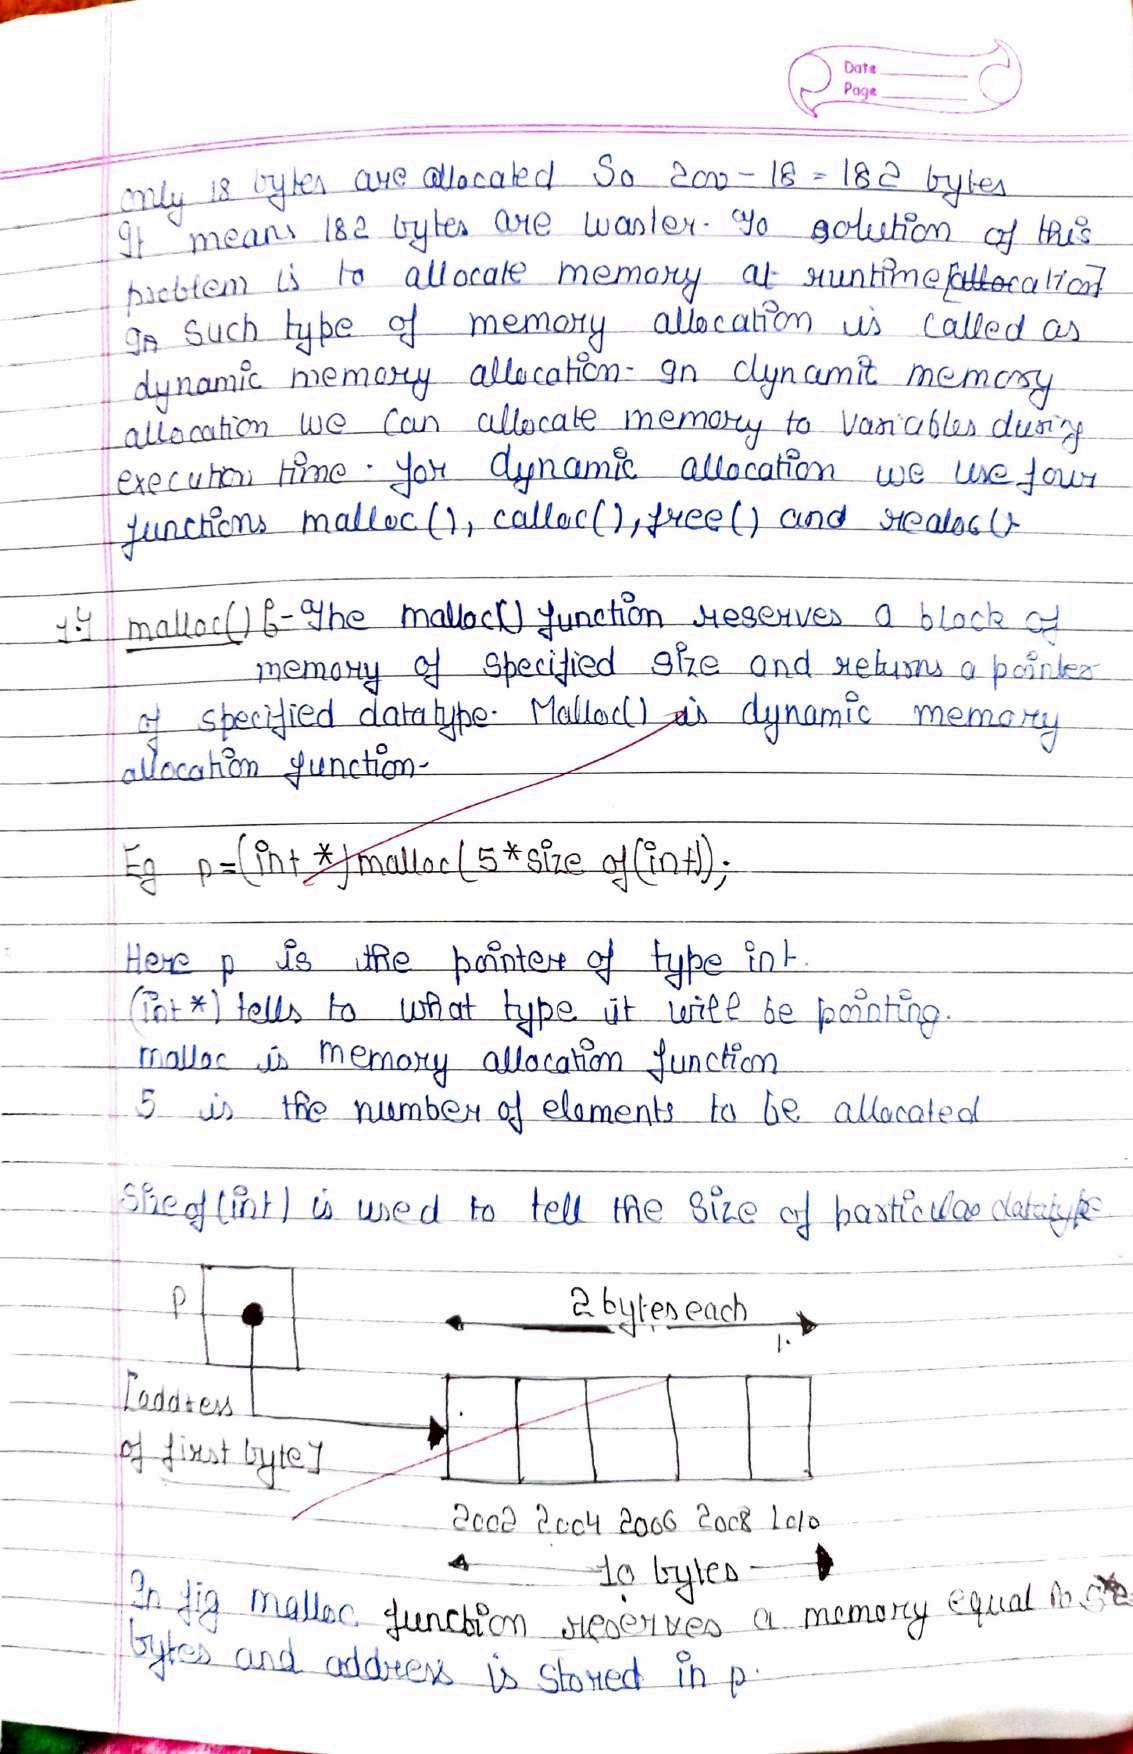 Date
Page
only 18 bytes are allocated So 200 - 18 = 182 bytes
It means 182 bytes are waster. To solution of this
problem is to allocate memory at runtime [allocation]
In Such type of memory allocation is called as
dynamic memory allocation. In dynamit memory
allocation we can allocate memory to variables during
execution time. for dynamic allocation we use four
functions malloc(), calloc(), free() and realoc()
malloc() :- The malloc() function reserves a block of
memory of specified size and returns a pointer
of specified datatype. Malloc() is dynamic memory
allocation function-
Eg p=(int *)malloc(5*size of(int));
Here p is the pointer of type int.
(int *) tells to what type it will be pointing.
malloc is memory allocation function
5 is the number of elements to be allocated
Size of (int) is used to tell the size of particular datatype
P
2 bytes each
[address
of first byte]
2002 2004 2006 2008 1010
10 bytes
In fig malloc function reserves a memory equal to 5*2
bytes and address is stored in p.